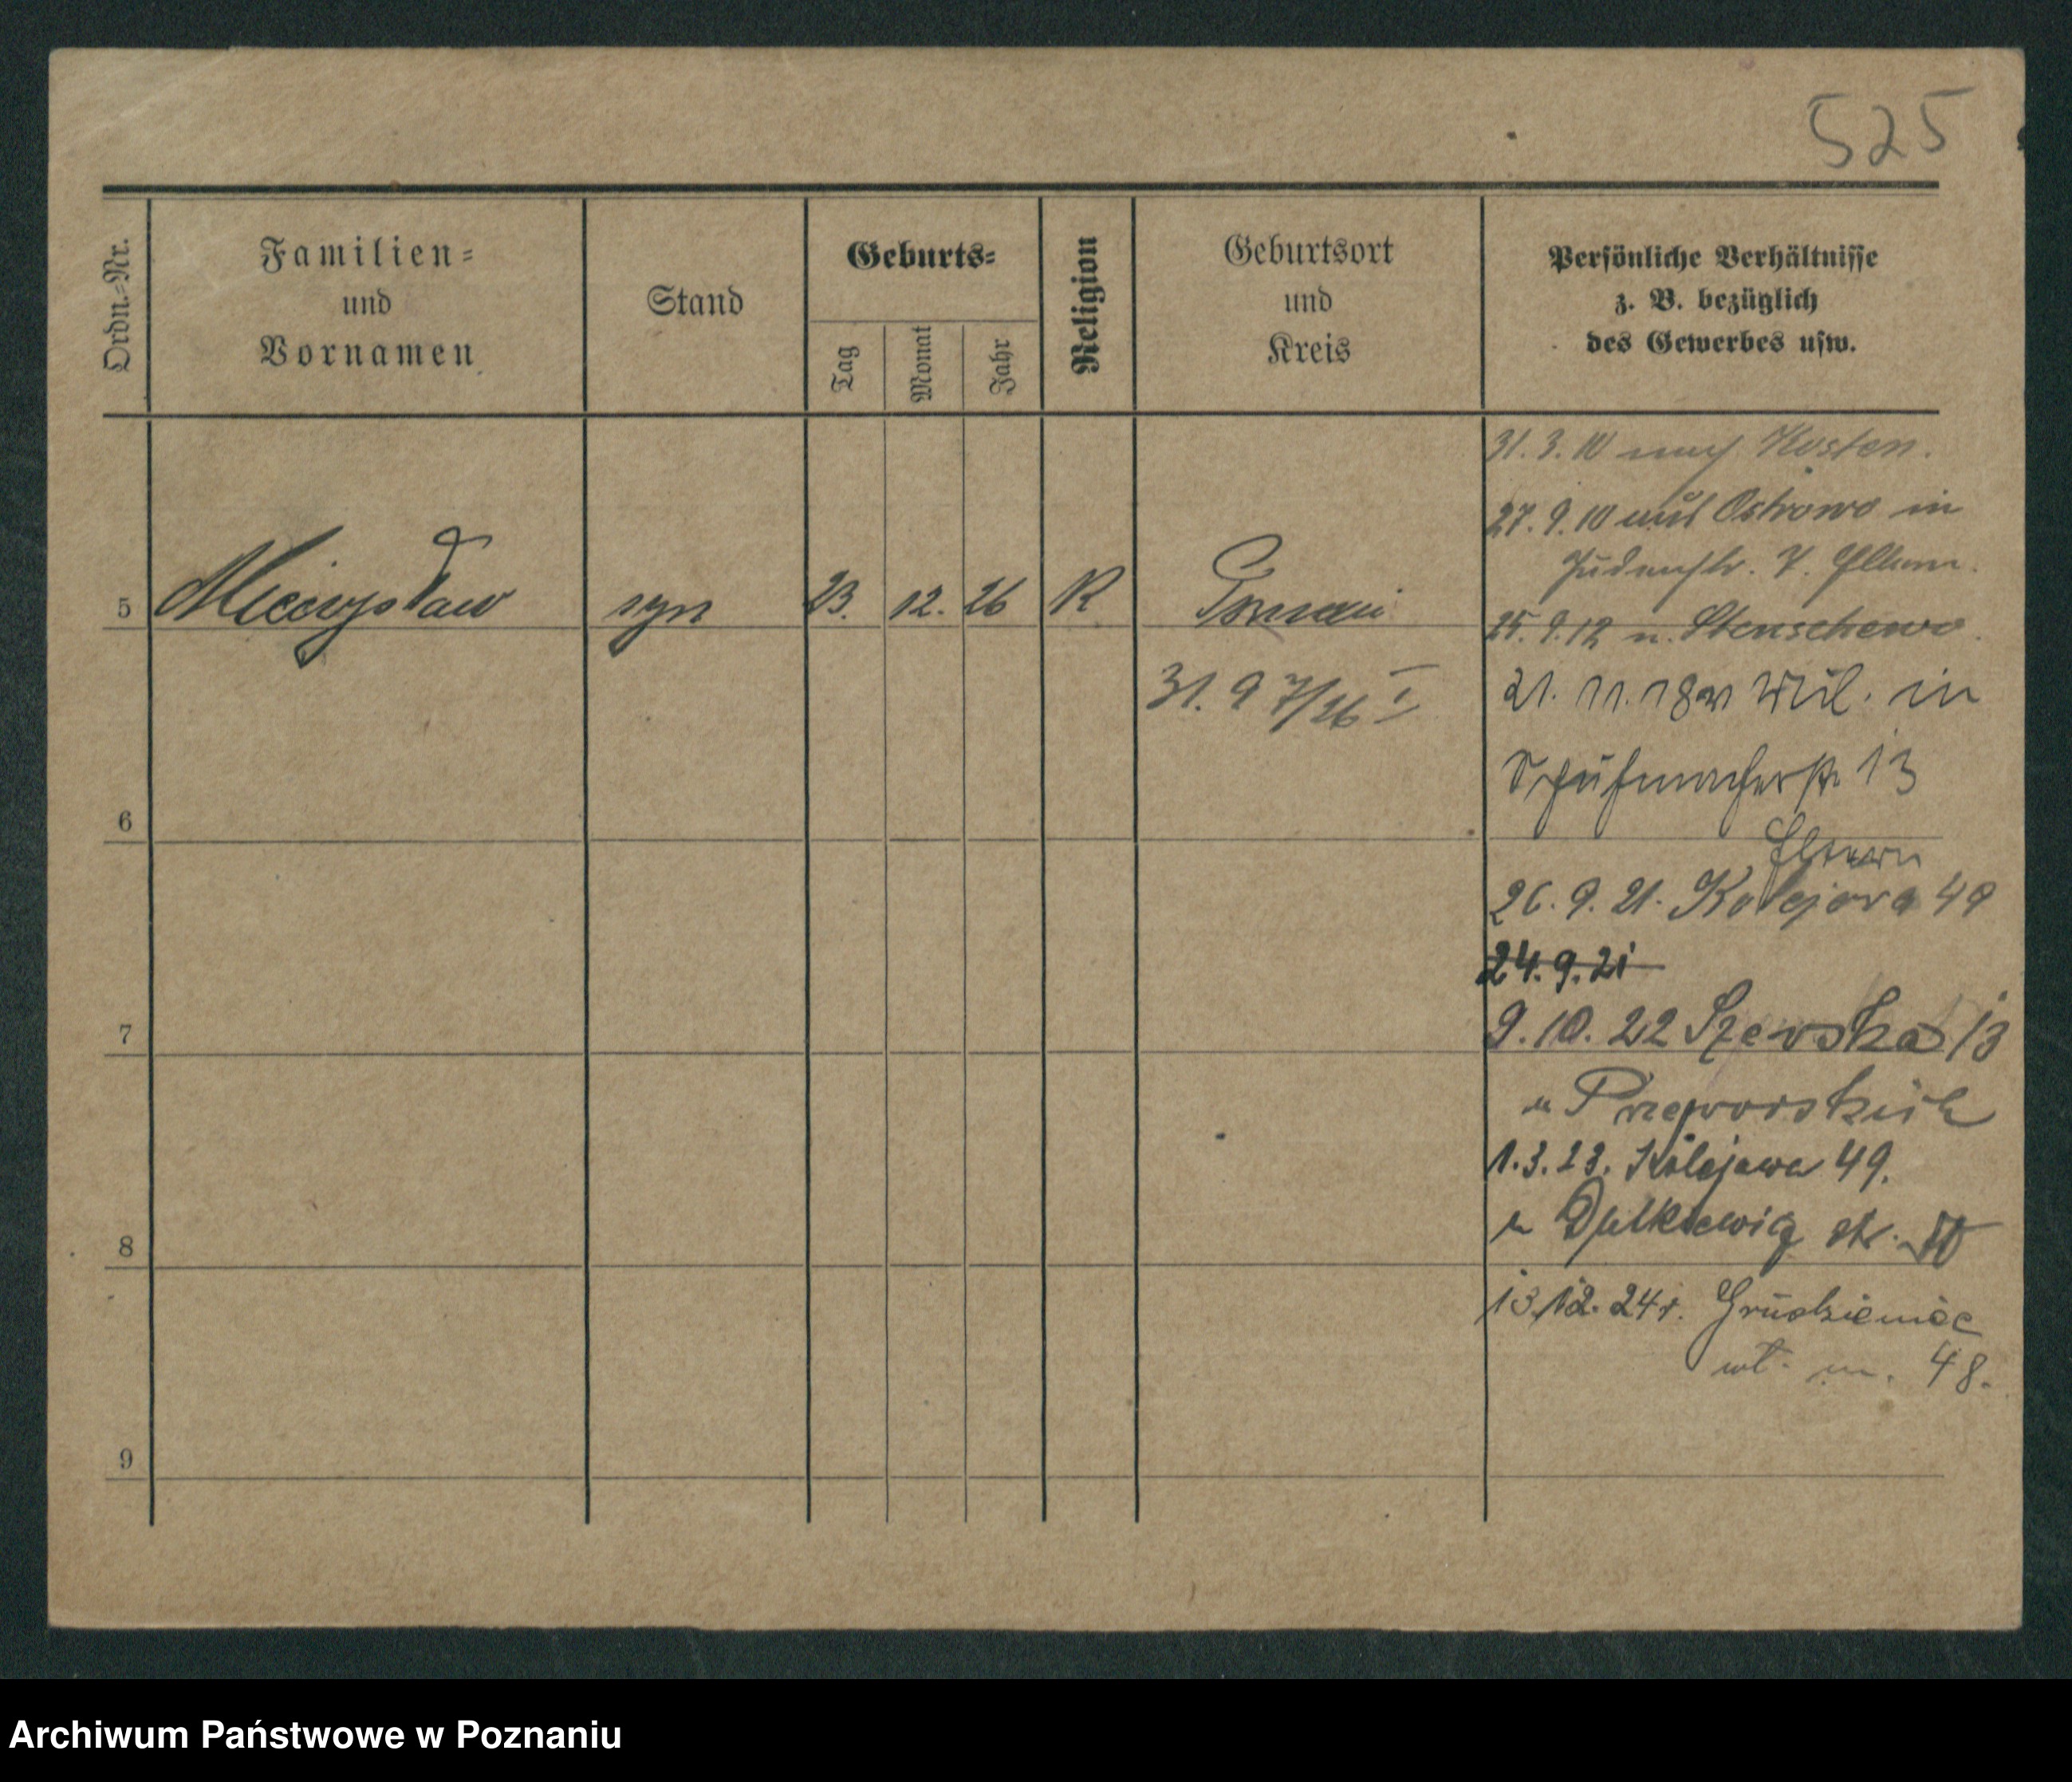 525
Ordn.=Nr.
Familien=
und
Vornamen
Stand
Geburts=
Tag
Monat
Jahr
Religion
Geburtsort
und
Kreis
Persönliche Verhältnisse
z. B. bezüglich
des Gewerbes usw.
31. 3. 10 nach Kosten.
27. 9. 10 aus Ostrowo in
Judenstr. 7. Eltern.
5 Mieczysław syn 23. 12. 26 R
25. 9. 12 n. Stenschewo.
31. 9
21. 11. 18 v Mil. in
Schuhmacherstr 13
6
Eltern
26. 9. 21. Kolejowa 49
24. 9. 21
7
9. 10. 22 Szewska 13
u Przeworskich
1. 3. 23. Kolejowa 49.
8
u
13. 12. 24 r. Grudzieniec
m. 48.
9
Archiwum Państwowe w Poznaniu